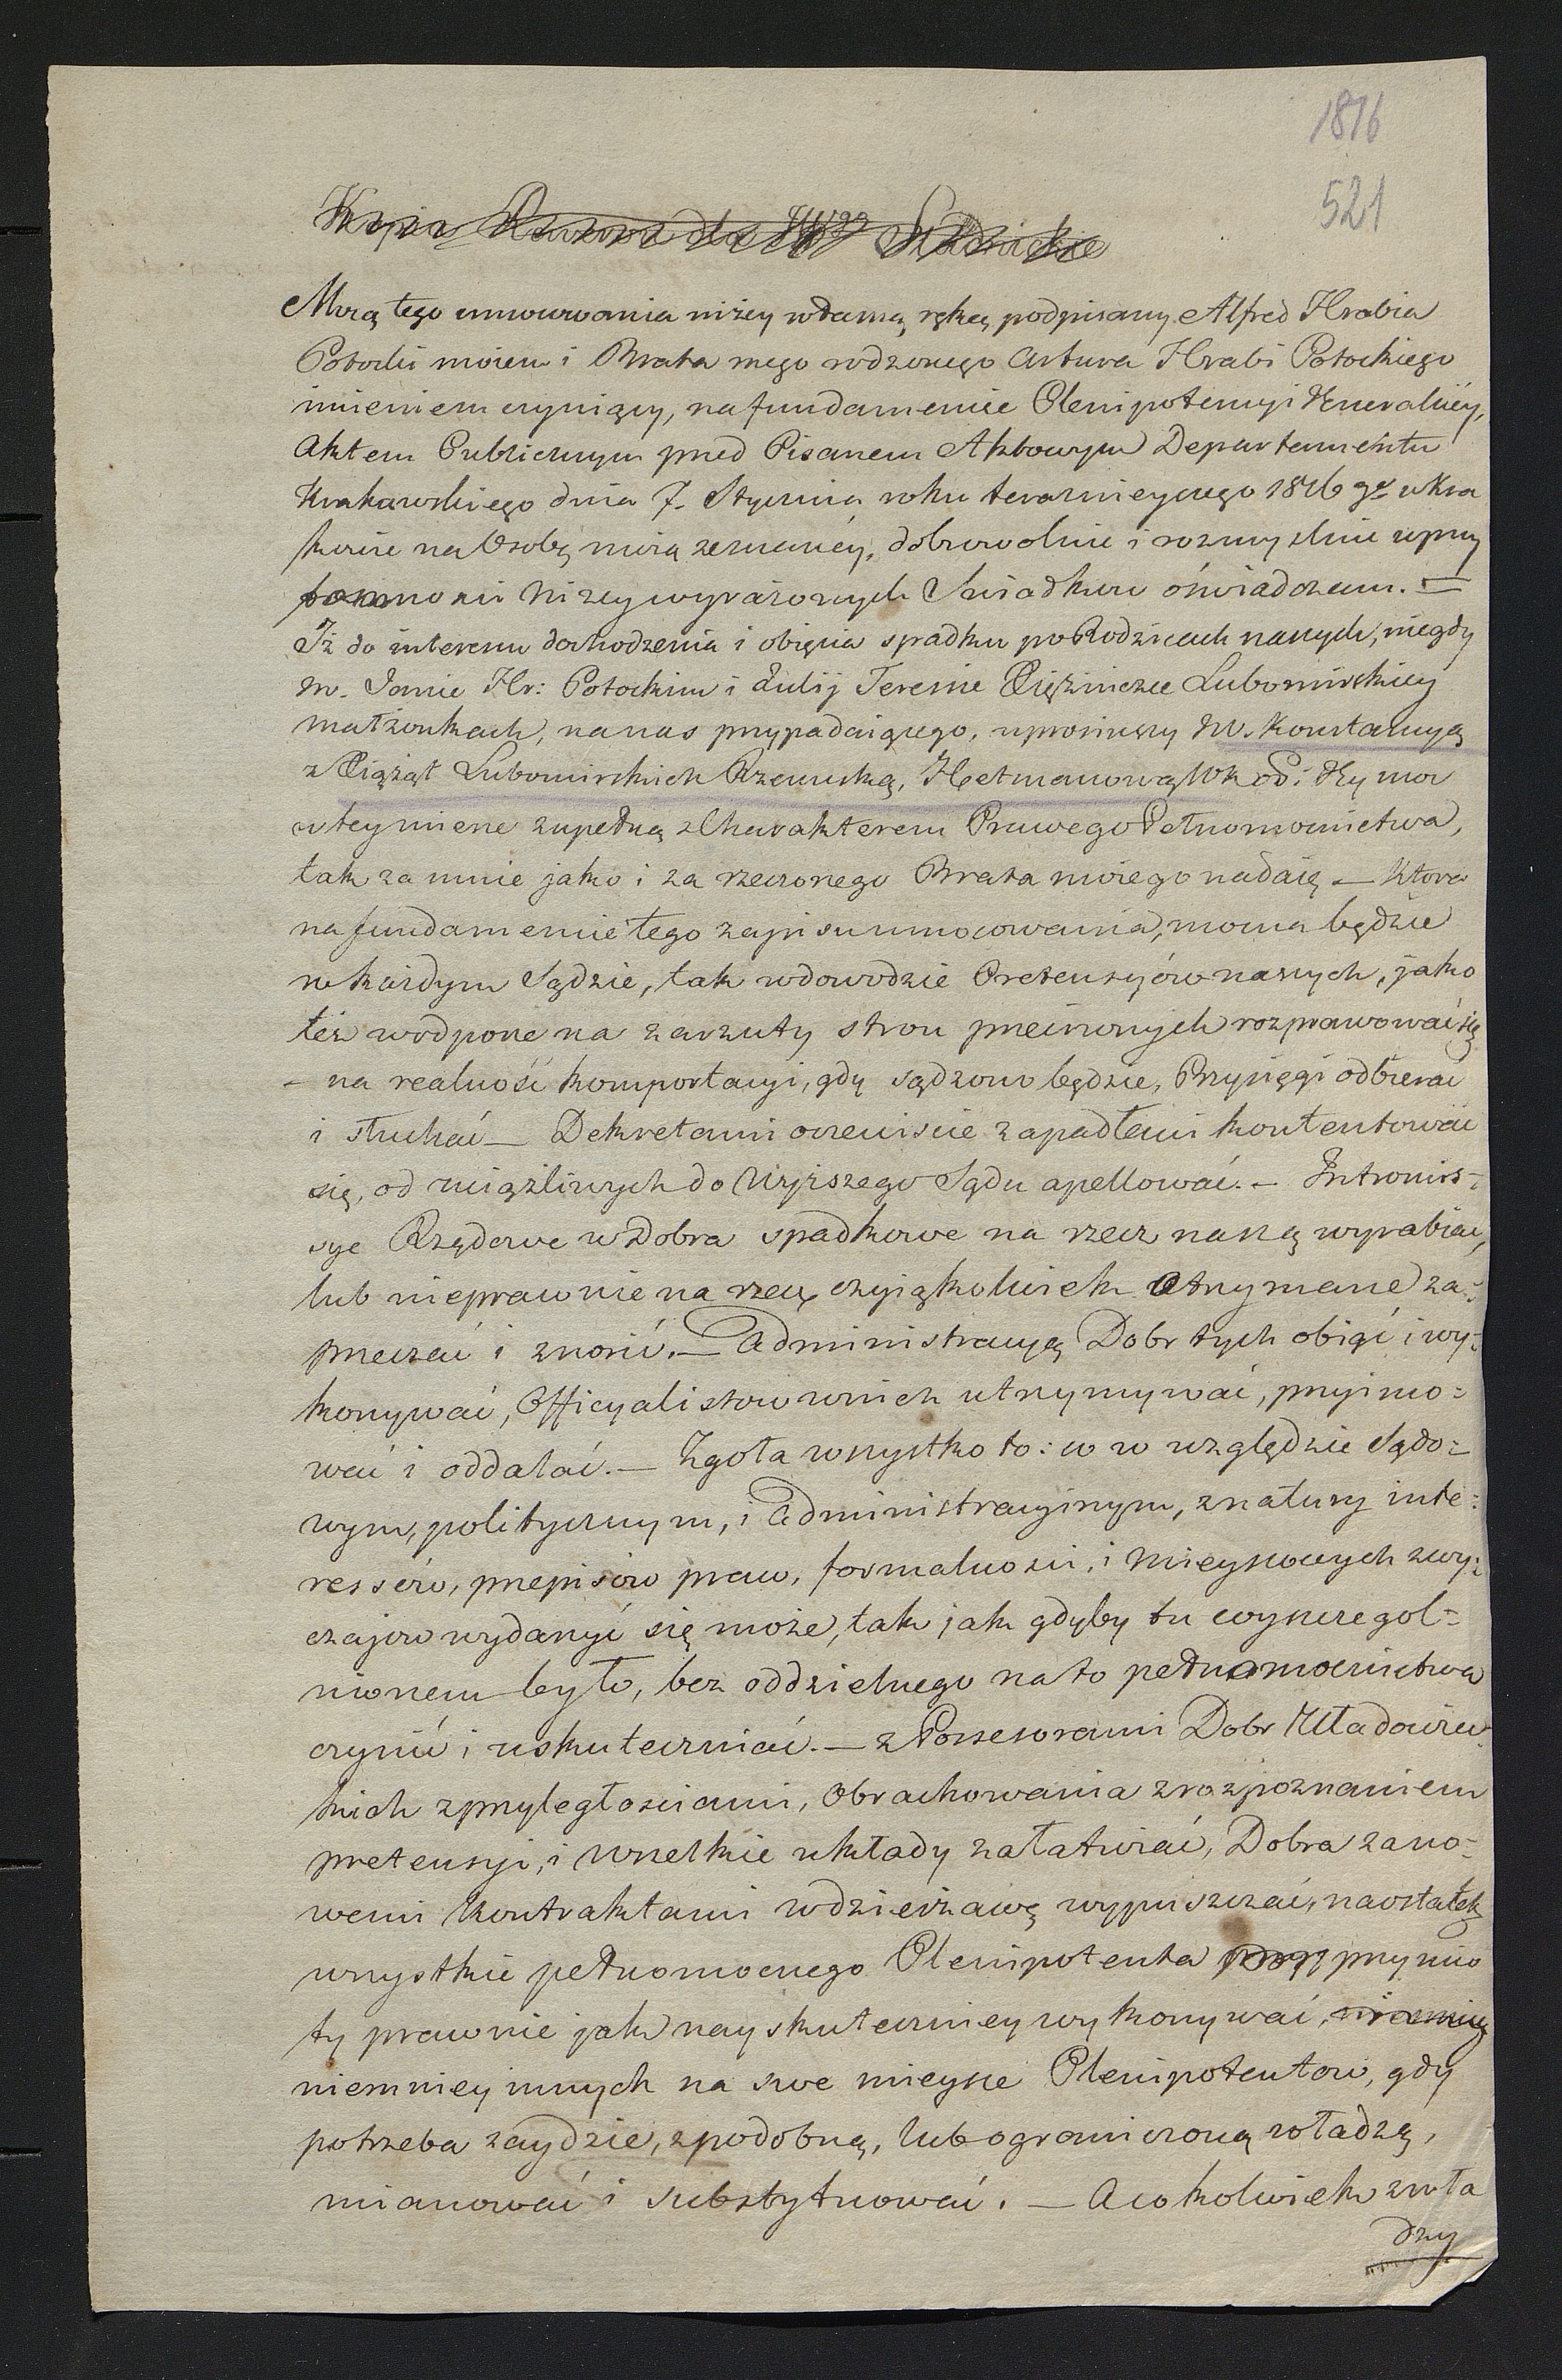 1816
521
Mocą tego umocowania niżey własną ręką podpisany Alfred Hrabia
Potocki moiem i Brata mego rodzonego Artura Hrabi Potockiego
imieniem czyniący, na fundamencie Plenipotencyi Generalney,
Aktem Publicznym przed Pisarzem Aktowym Departamentu
Krakowskiego dnia 7. Stycznia roku teraznieyszego 1816 go w Kra
kowie na Osobę moią zeznaney, dobrowolnie i rozmyślnie w przy
tomności niżey wyrażonych Swiadkow oświadczam. —
Iż do interesu dochodzenia i obięcia spadku po Rodzicach naszych, niegdy
JW. Janie Hr: Potockim i Julij Teresie Xiężniczce Lubomirskiey
małżonkach, na nas przypadaiącego, uprosiwszy JW. Konstancyą
z Xiążąt Lubomirskich Rzewuską, Hetmanową WK od: Jey moc
w tey mierze zupełną z Charakterem Prawego Pełnomocnictwa,
tak za mnie jako i za rzeczonego Brata moiego nadaię — Ktora
na fundamencie tego zapisu umocowania, mocna będzie
w każdym Sądzie, tak w dowodzie Pretensyów naszych, jako
też w odporze na zarzuty stron przeciwnych rozprawować się
– na realność komportacyi, gdy sądzono będzie, Przysięgi odbierać
i słuchać — Dekretami oczewiscie zapadłemi kontentować
się, od uciążliwych do Wyższego Sądu apellować. — Intromis-
sye Rządowe w Dobra spadkowe na rzecz naszą wyrabiać,
lub nieprawnie na rzecz czyiąkolwiek otrzymane za-
przeczać i znosić. — Administracyą Dobr tych obiąć i wy-
konywać, Officyalistow w nich utrzymywać, przyimo-
wać i oddalać. — Zgoła wszystko to: co w względzie Sądo-
wym, politycznym, i Administracyinym, z natury inte-
ressów, przepisów praw, formalności, i mieyscowych zwy-
czajow wydarzyć się może, tak jak gdyby tu wyszczegol-
nionem było, bez oddzielnego na to pełnomocnictwa
czynić i uskuteczniać. — z Possesorami Dobr Uładowiec-
kich z przyległościami, Obrachowania z rozpoznaniem
pretensyi, i wszelkie układy załatwiać, Dobra za no-
wemi Kontraktami w dzierżawę wypuszczać, na ostatek
wszystkie pełnomocnego Plenipotenta przymio
ty prawnie jak nayskuteczniey wykonywać,
niemniey innych na swe mieysce Plenipotentow, gdy
potrzeba zaydzie, z podobną, lub ograniczoną władzą,
mianować i substytuować. — A cokolwiek z wła
dzy